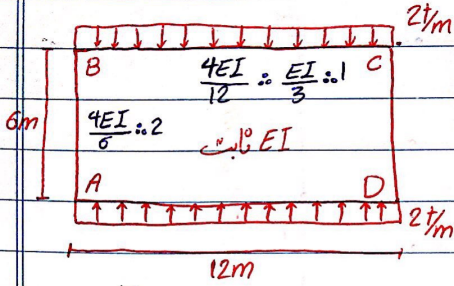 2t/m
B
4EI/12 ∴ EI/3 ∴ 1
C
6m
4EI/6 ∴ 2
EI ثابت
A
D
2t/m
12m